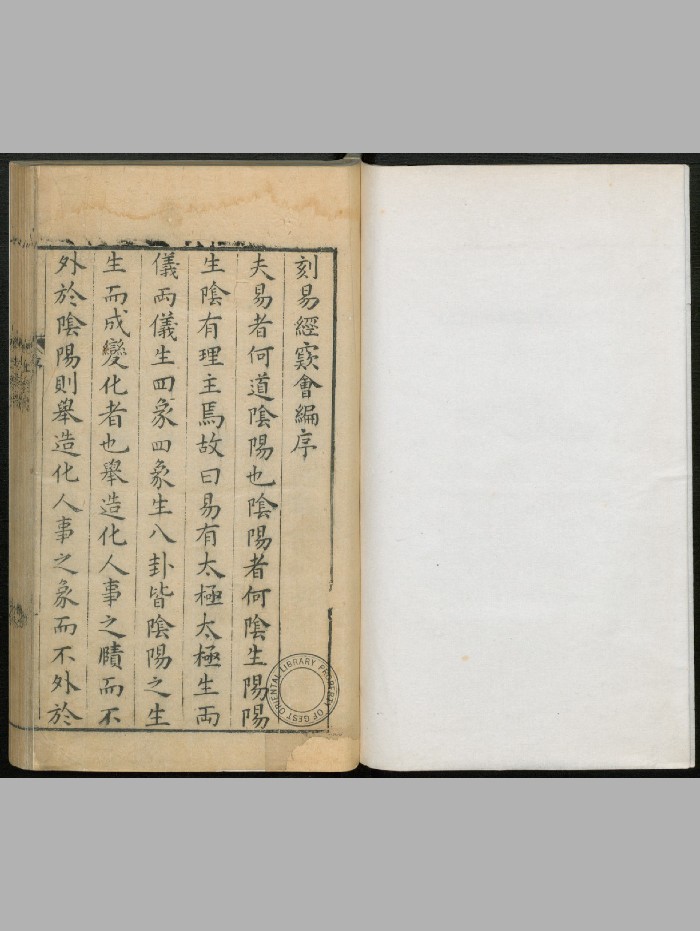 刻易經窽會編序
夫易者何道陰陽也陰陽者何陰生陽陽
生陰有理主焉故曰易有太極太極生兩
儀兩儀生四象四象生八卦皆陰陽之生
生而成變化者也舉造化人事之賾而不
外於陰陽則舉造化人事之象而不外於
序
PROPERTY OF GEST ORIENTAL LIBRARY